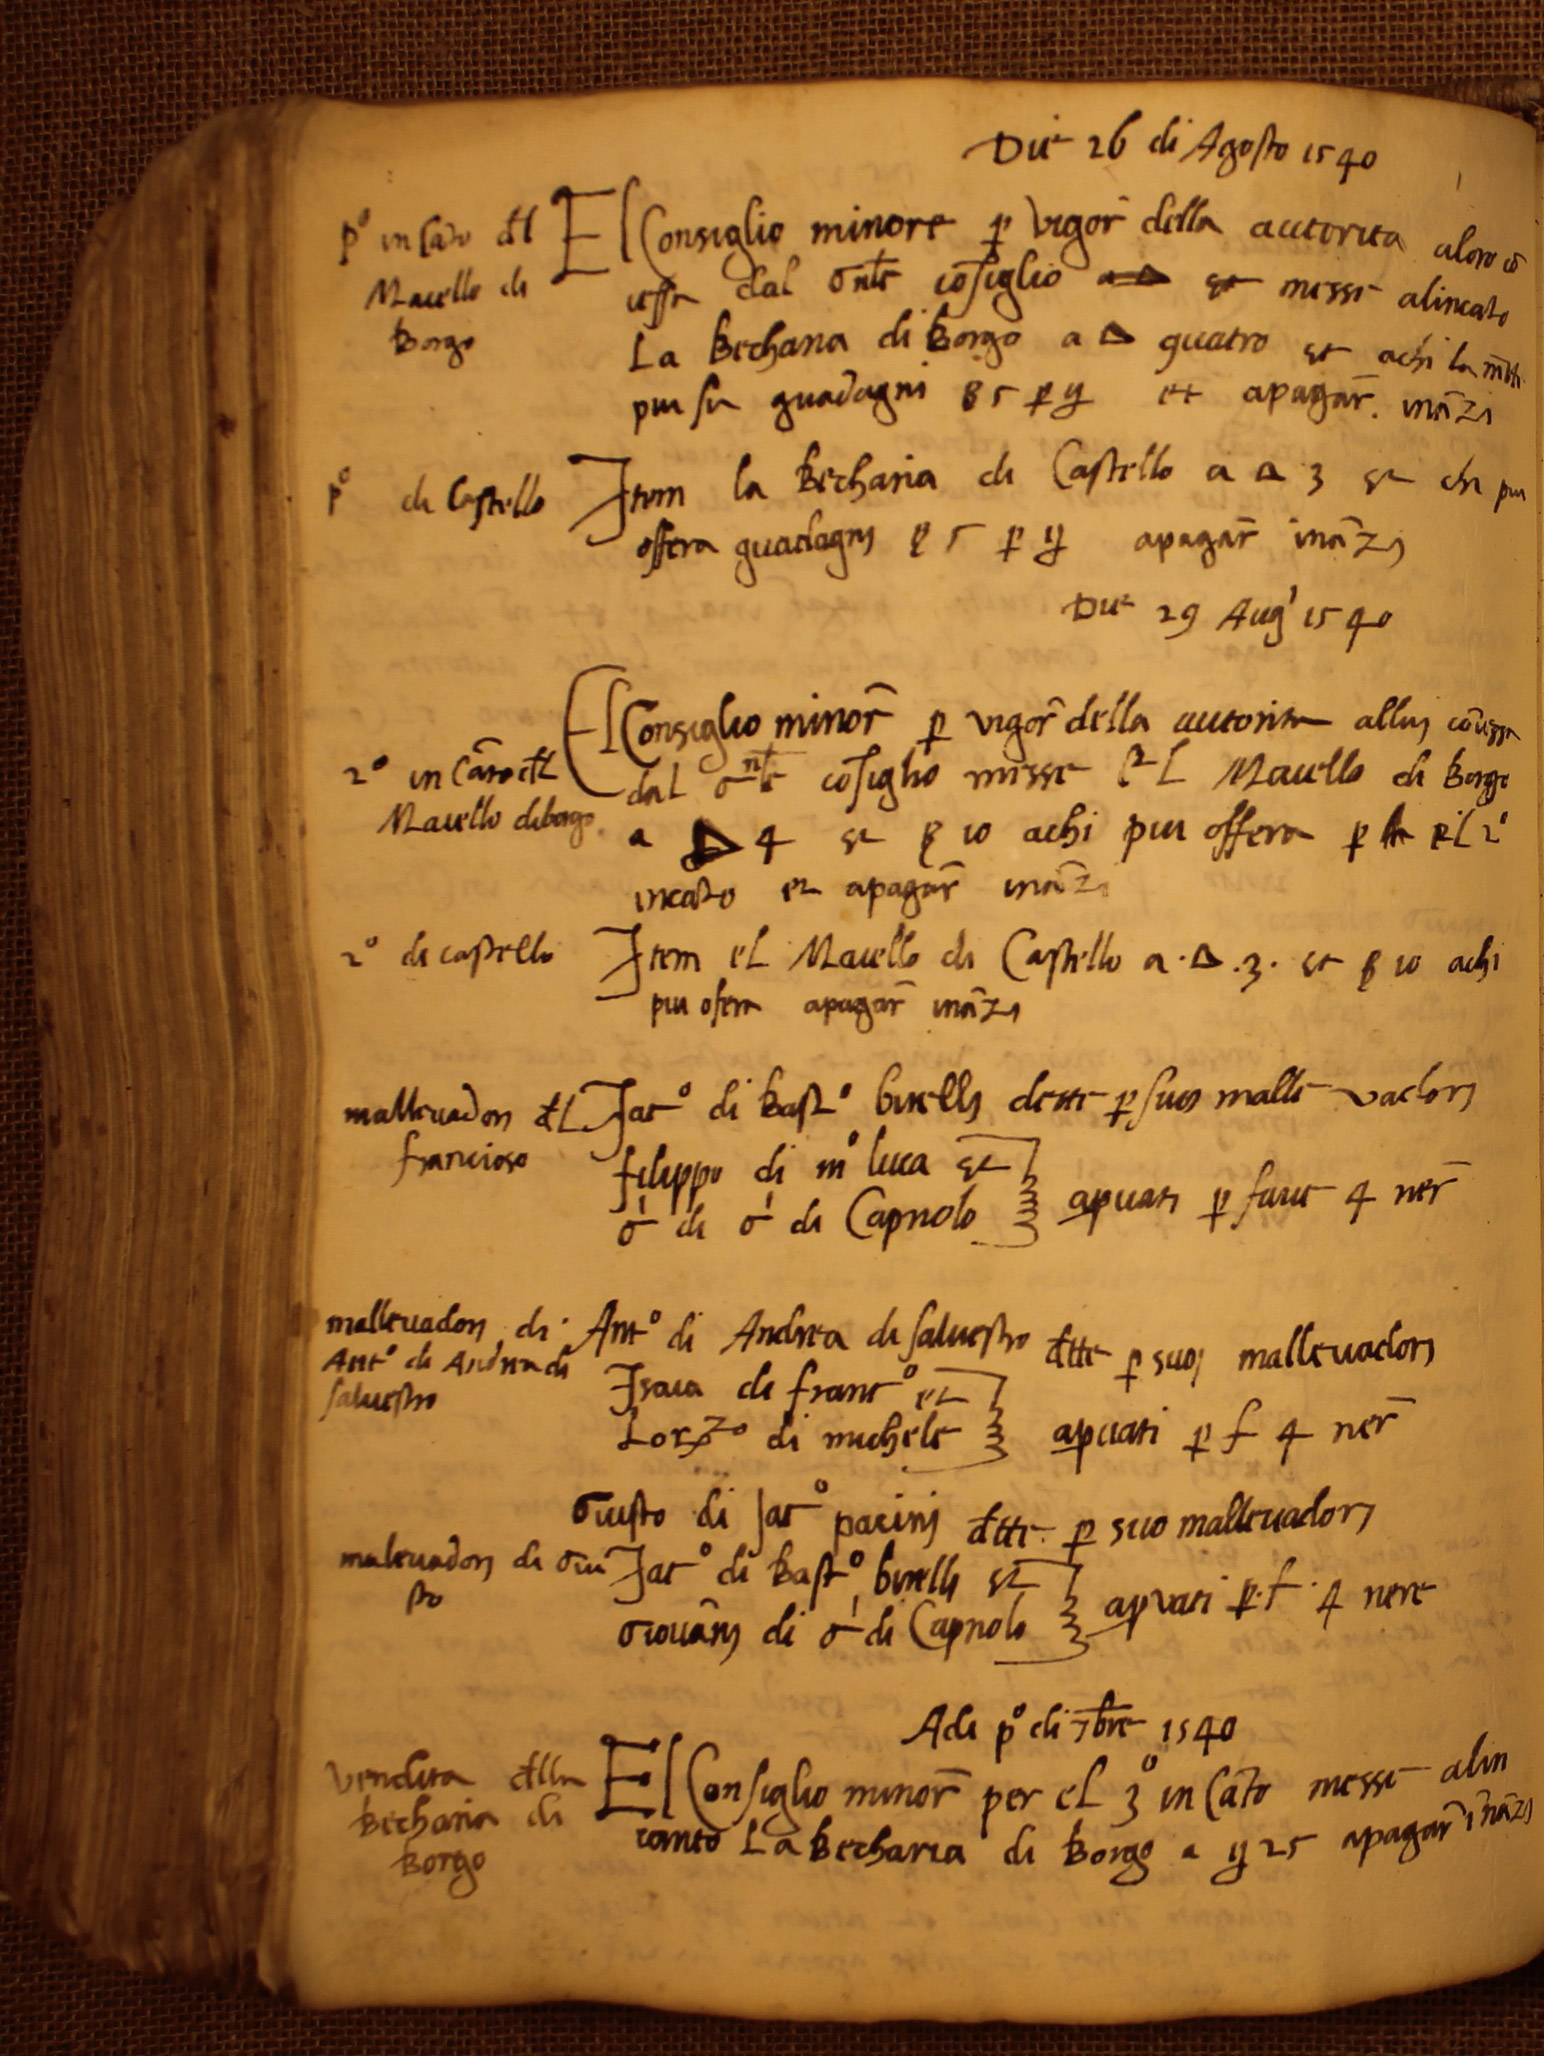 Die 26 di Agosto 1540
p° in cāto dl
Macello di
Borgo
El Consiglio minore p vigor̄ della autorita aloro cō
cessa dal Gnle cōsiglio a Δ et messe alincato
La Becharia di Borgo a Δ quatro et achi la mētti
piu su guadagni β 5 p et apagar̄ inā̄zi
p° di Castello
Item la Becharia di Castello a Δ 3 et chi piu
offera guadagnj β 5 p apagar̄ inā̄zj
Die 29 Aug' 1540
2° in cāto dl
Macello di borgo
El Consiglio minor̄ p vigor̄ della autorita alluj cōcessa
dal Gnle cōsiglio messe el Macello di Borgo
a Δ 4 et β 10 achi piu offera p el 2°
incato et apagar̄ inā̄zi
2° di castello
Item el Macello di Castello a . Δ .3. et β 10 achi
piu ofera apagar̄ inā̄zi
mallevadori dl
francioso
Jac° di Bast° birellj dette p suoj malle vadorj
filippo di m° luca et
G' di G' di Capriolo apvati p fave 4 ner̄
mallevadorj di
Ant° di Andrea di
salvestro
Ant° di Andrea di salvestro dtte p suoj mallevadorj
Isaia di franc° et
Lorzo di michele apvati p f 4 ner̄
Giusto di Jac° pacinj dtte p suo mallevadorj
malevadorj di Giu
sto
Jac° di Bast° birellj et
Giovānj di G' di Capriolo apvati p. f . 4 nere
Adi p° di 7bre 1540
Vendita dlla
Becharia di
Borgo
El Consiglio minor̄ per el 3° in cāto messe alin
canto La Becharia di Borgo a 25 apagar̄ inā̄zj